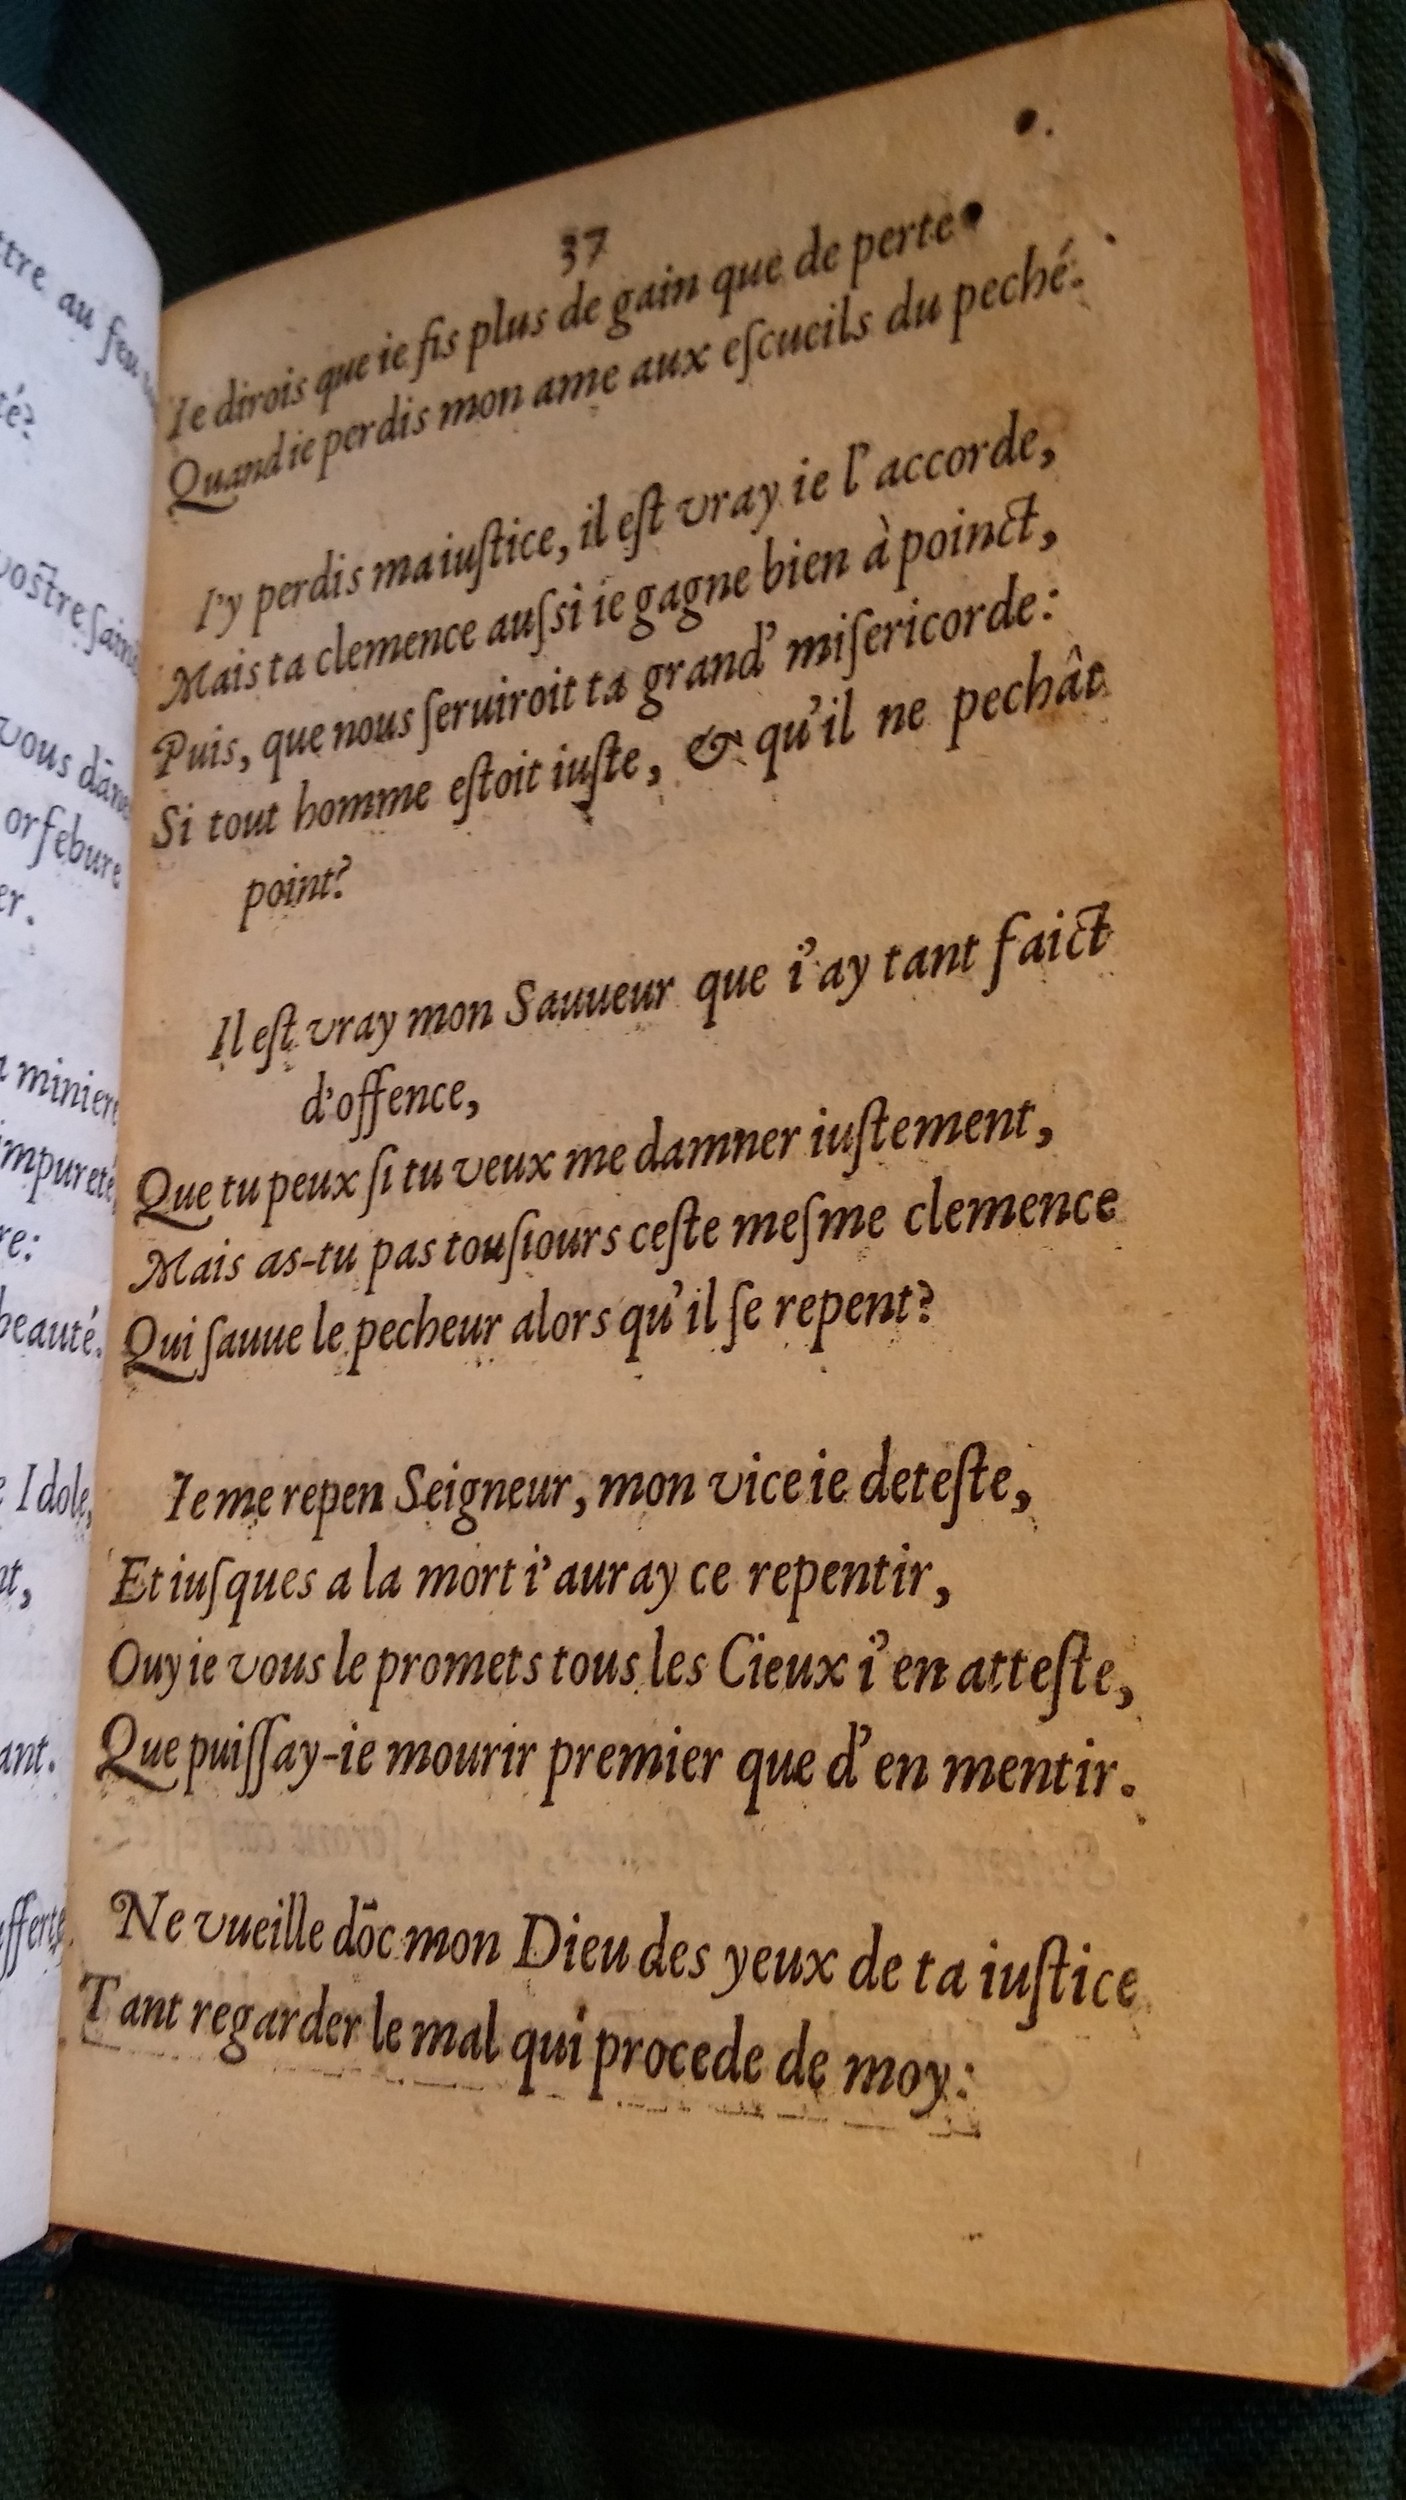 ttre au feu
té?
vostre sain
vous dãne
orfebure
er.
a miniere
impureté,
re:
beauté.
e Idole,
nt,
ant.
ufferte
37
Ie dirois que ie fis plus de gain que de perte
Quand ie perdis mon ame aux eſcueils du peché.
I'y perdis ma iuſtice, il eſt vray ie l'accorde,
Mais ta clemence auſsi ie gagne bien à poinct,
Puis, que nous ſeruiroit ta grand' miſericorde:
Si tout homme eſtoit iuſte, & qu'il ne pechât
point?
Il eſt vray mon Sauueur que i'ay tant faict
d'offence,
Que tu peux ſi tu veux me damner iuſtement,
Mais as-tu pas touſiours ceſte meſme clemence
Qui ſauue le pecheur alors qu'il ſe repent?
Ie me repen Seigneur, mon vice ie deteſte,
Et iuſques a la mort i'auray ce repentir,
Ouy ie vous le promets tous les Cieux i'en atteſte,
Que puiſſay-ie mourir premier que d'en mentir.
Ne vueille dõc mon Dieu des yeux de ta iuſtice
Tant regarder le mal qui procede de moy: